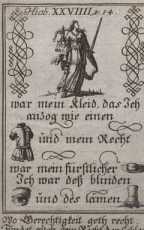 Hiob. XXVIIII, v. 14.
war mein Kleid, das Ich
anzog wie einen
und mein Recht
war mein fürstlicher
Ich war deß blinden
und des lamen
Wo Gerechtigkeit geth recht